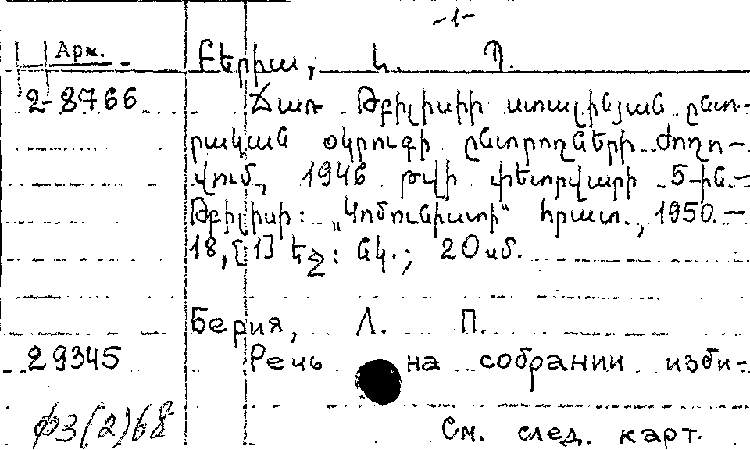 -1-
Арм.
Բերիա, Լ. Պ.
2-8766 Ճառ Թբիլիսիի ստալինյան ընտ-
րական օկրուգի ընտրողների ժողո-
վում, 1946 թվի փետրվարի 5-ին.-
Թբիլիսի: „Կոմունիստի" հրատ., 1950.-
18,[1] եջ: նկ.; 20 սմ.
Берия, Л. П.
29345 Речь на собрании изби-
ф3(2)68
См. след. карт.